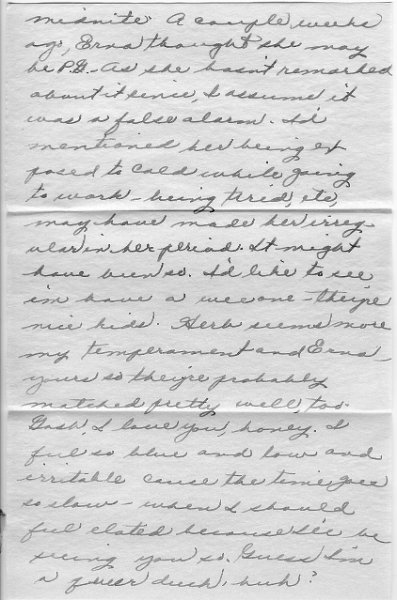 midnite. A couple weeks
ago, Erna thought she may
be P.G. As she hasn't remarked
about it since, I assume it
was a false alarm. I'd
mentioned her being ex
posed to cold while going
to work - being tired, etc,
may have made her irreg-
ular in her period. It might
have been so. I'd like to see
'im have a wee one - they're
nice kids. Herb seems more
my temperament and Erna -
yours so they're probably
matched pretty well, too.
Gosh, I love you, honey. I
feel so blue and low and
irritable cause the time goes
so slow - when I should
feel elated because I'll be
seeing you so. Guess I'm
a queer duck, huh?